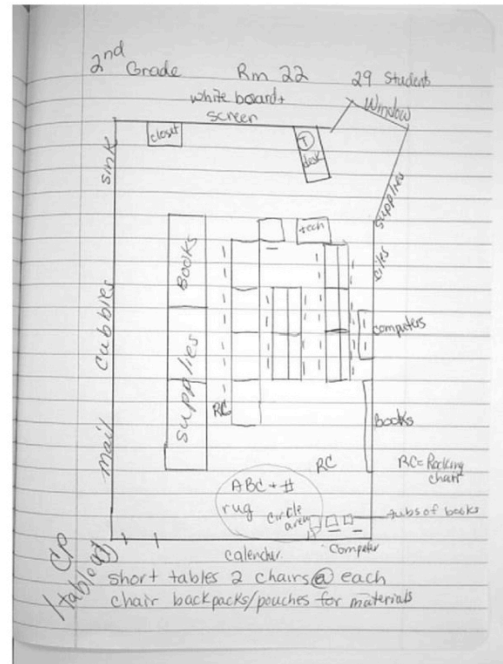 2nd Grade Rm 22 29 Students
white board +
screen
Window
closet
T
desk
sink
supplies
tech
Books
computers
Cubbies
supplies
Books
RC
Mail
RC
RC = Rocking
chair
ABC + #
rug
circle
area
tubs of books
calender
Computer
CP
short tables 2 chairs @ each
chair backpacks/pouches for materials